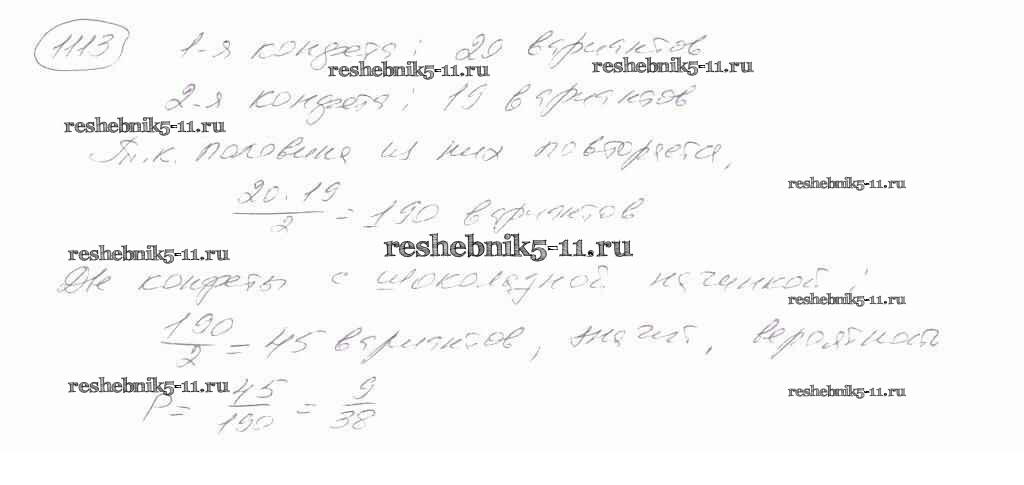 1113 1-я конфета: 20 вариантов
reshebnik5-11.ru reshebnik5-11.ru
2-я конфета: 19 вариантов
reshebnik5-11.ru
Т.к. половина из них повторяется,
reshebnik5-11.ru
20·19/2 = 190 вариантов
reshebnik5-11.ru reshebnik5-11.ru
Две конфеты с шоколадной начинкой:
reshebnik5-11.ru
190/2 = 45 вариантов, значит, вероятность
reshebnik5-11.ru reshebnik5-11.ru
P = 45/190 = 9/38